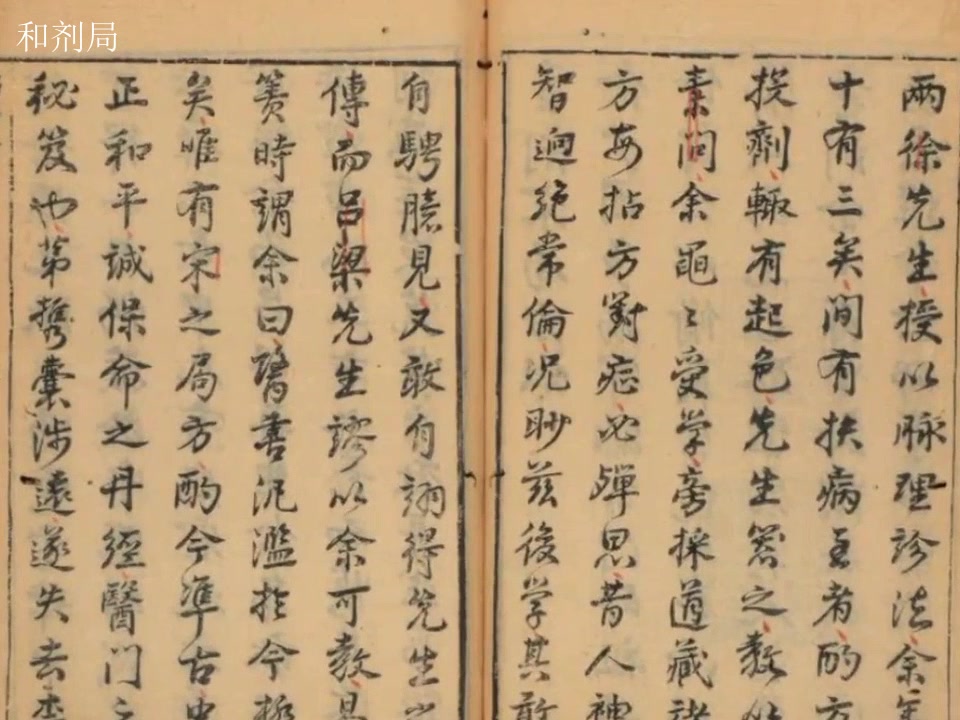 和剂局
兩徐先生授以脉理診法余年
十有三矣間有扶病至者酌方
授劑輙有起色先生署之教以
素問余黽〻受学旁採道藏諸
方每拈方對症必殫思昔人神
智迥绝常倫况眇茲後学其敢
自騁臆見又敢自詡得先生
傳而呂梁先生謬以余可教
簣時謂余曰醫書汎濫於今
矣唯有宋之局方酌今準古
正和平誠保命之丹經醫門之
秘笈也第携囊涉遠遂失去